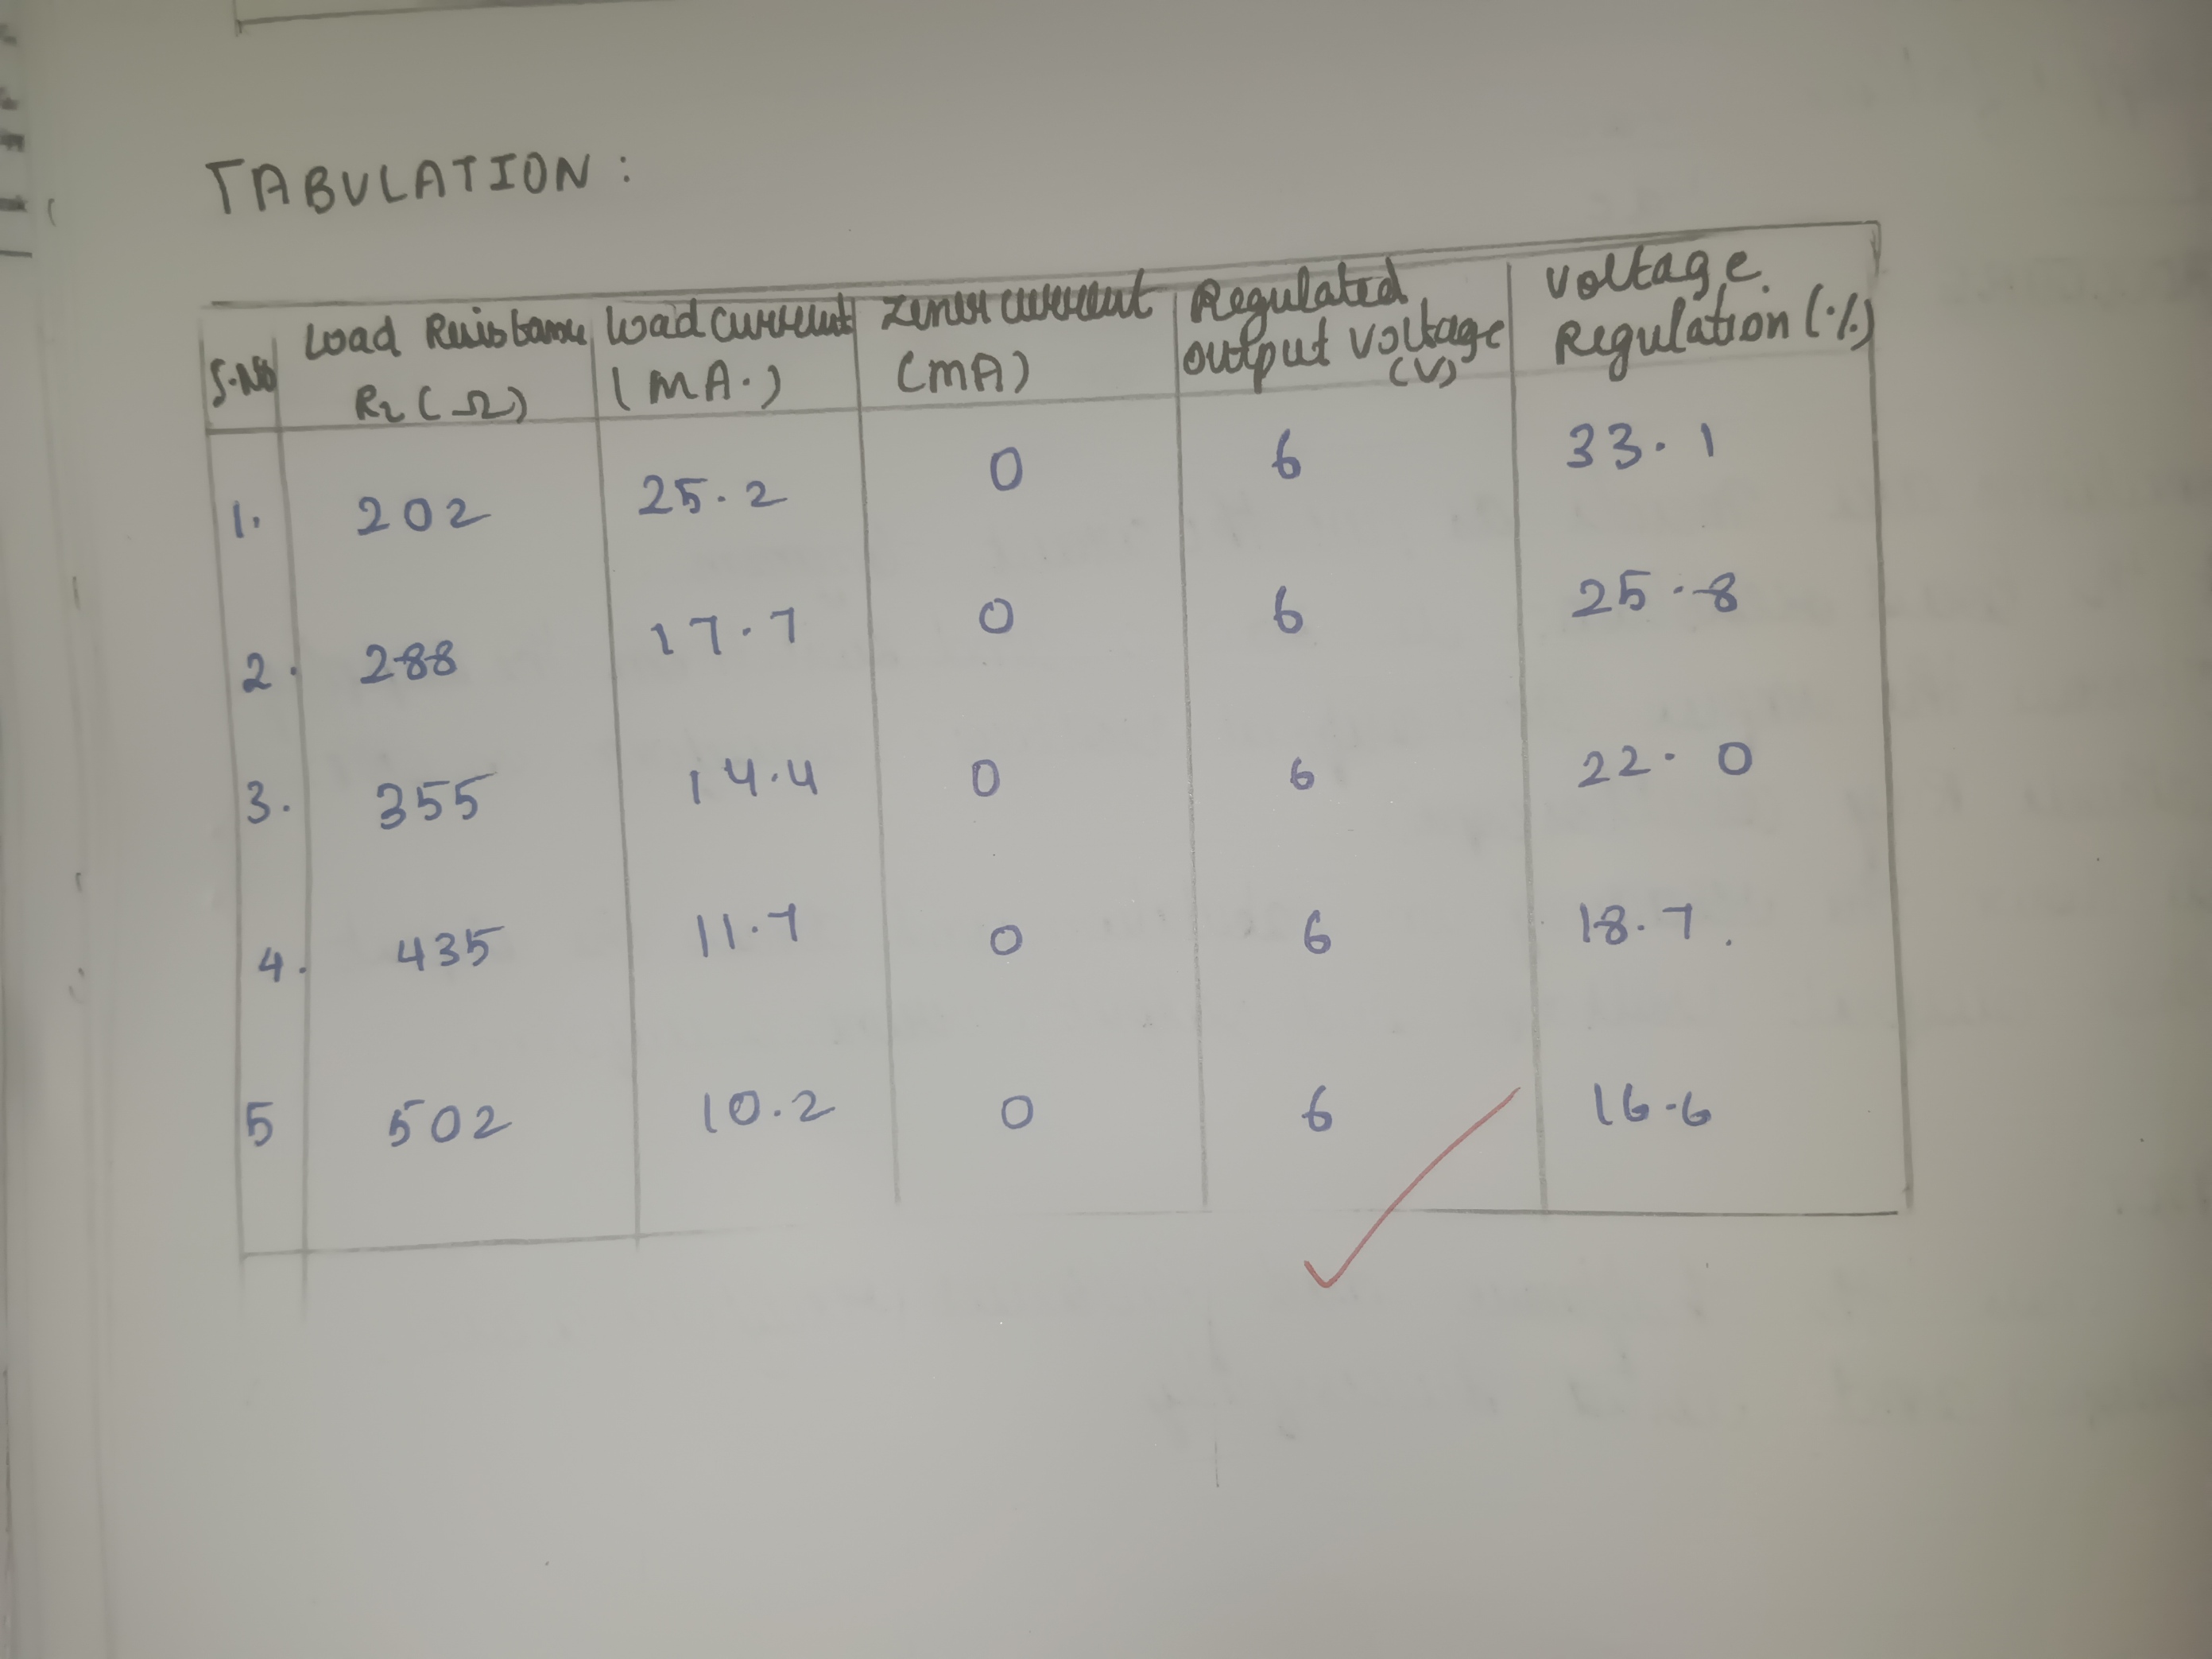 TABULATION :
S.No Load Resistance RL (Ω) Load current (MA.) Zener current (mA) Regulated output voltage (V) Voltage Regulation (%)
1. 202 25.2 0 6 33.1
2. 288 17.7 0 6 25.8
3. 355 14.4 0 6 22.0
4. 435 11.7 0 6 18.7.
5 502 10.2 0 6 16.6